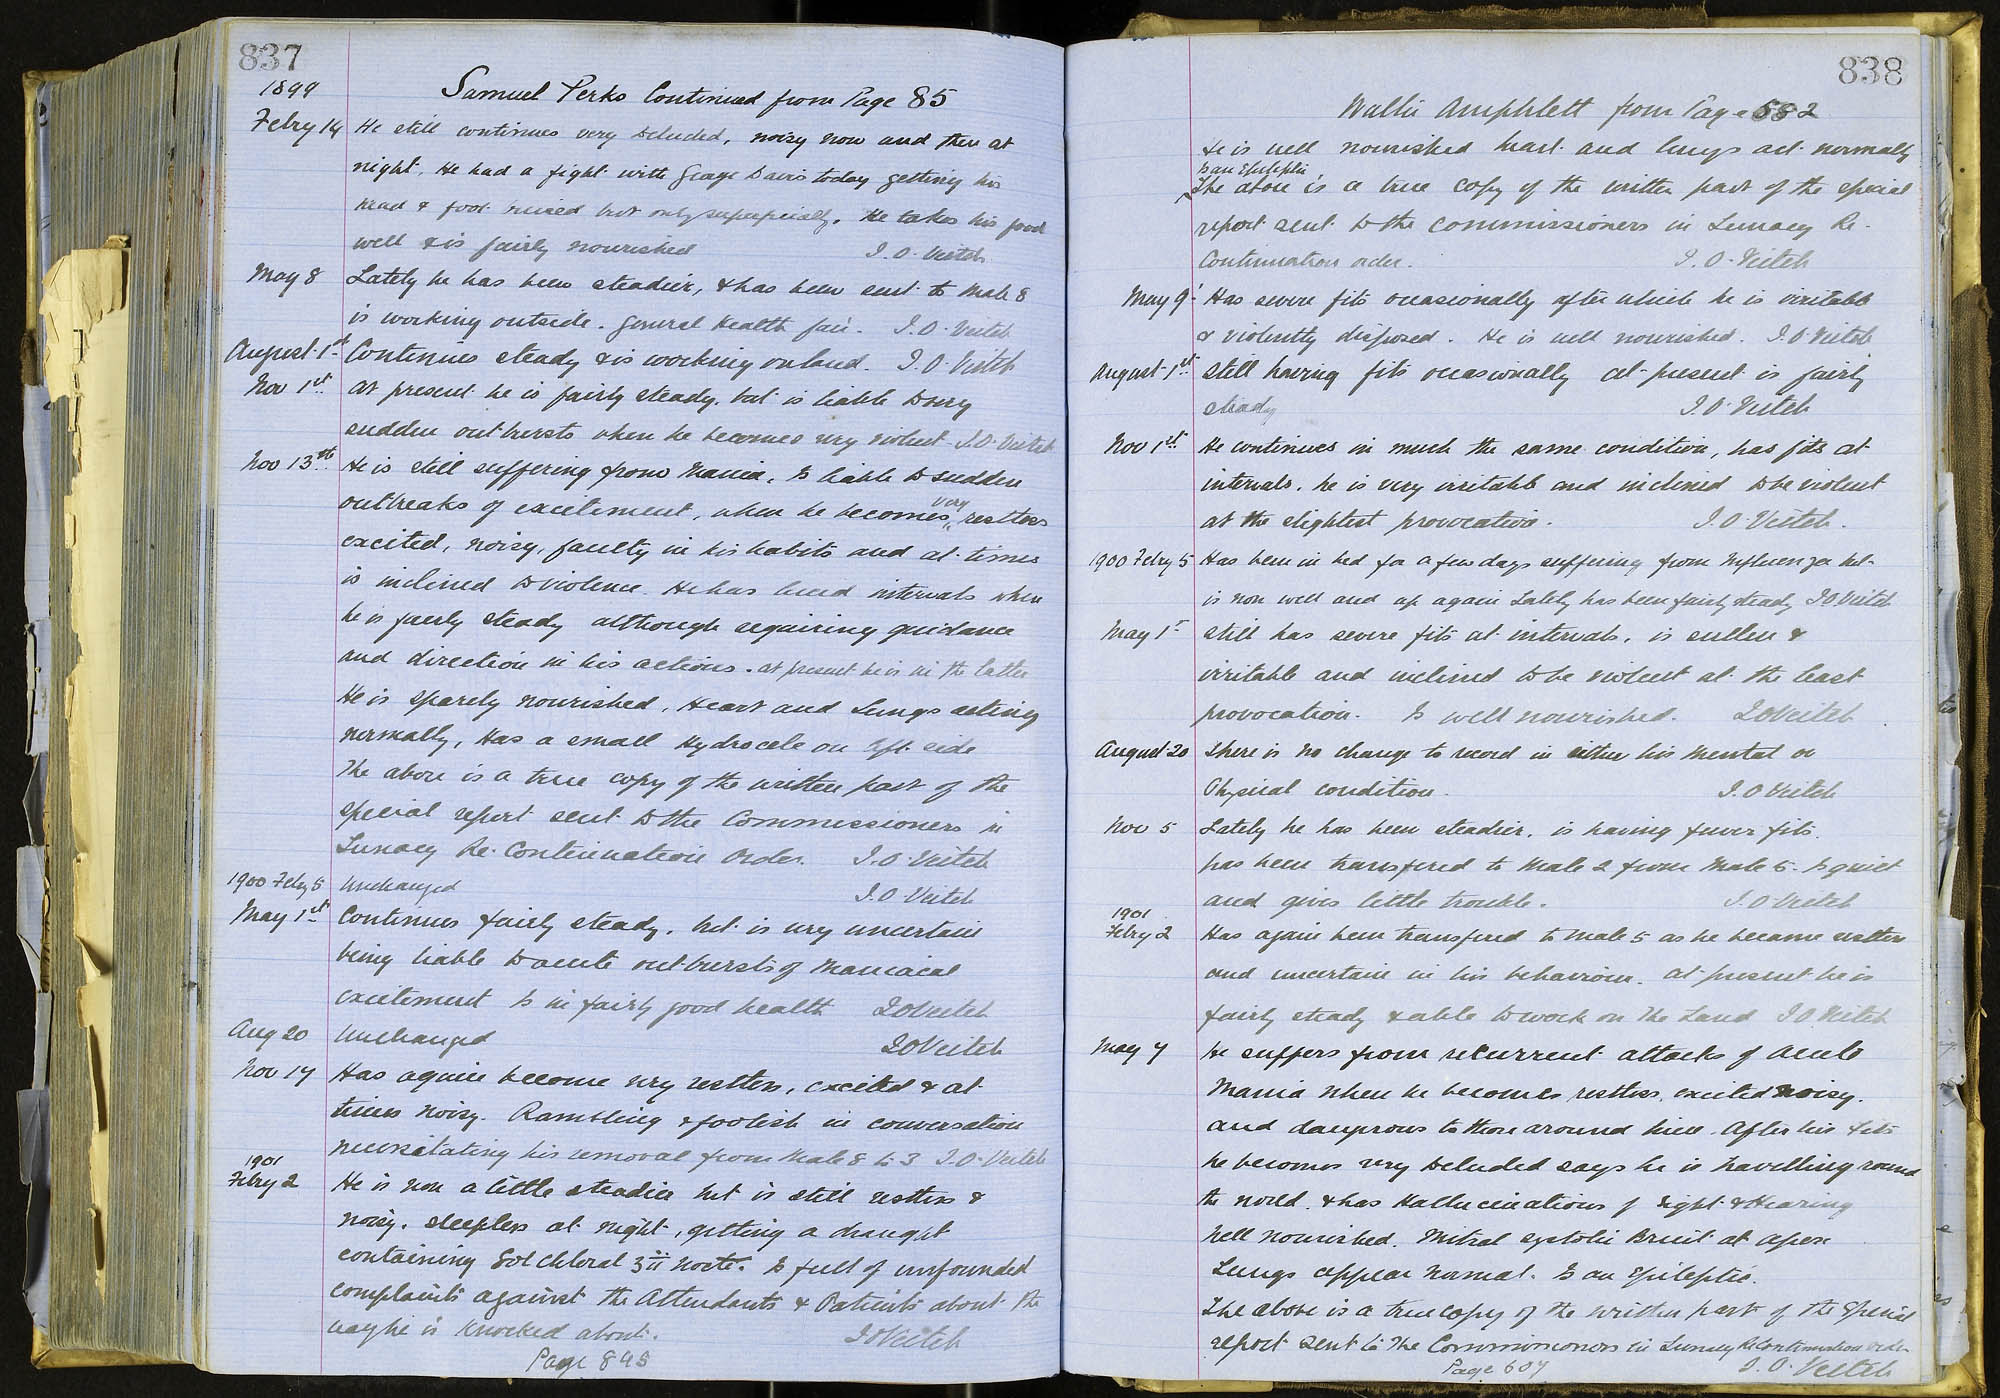 837
1899
Samuel Perks Continued from Page 85
Febry 14 He still continues very deluded, noisy now and then at
night. He had a fight with George Davis today getting his
head & foot bruised but only superficially. He takes his food
well & is fairly nourished J. O. Veitch
May 8 Lately he has been steadier, & has been sent to Male 8
is working outside. General Health fair. J. O. Veitch
August 1st Continues steady & is working on land. J. O. Veitch
Nov 1st At present he is fairly steady, but is liable to very
sudden outbursts when he becomes very violent J. O. Veitch
Nov 13th He is still suffering from Mania. Is liable to sudden
outbreaks of excitement, when he becomes very restless
excited, noisy, faulty in his habits and at times
is inclined to violence. He has lucid intervals when
he is fairly steady although requiring guidance
and direction in his actions. at present he is in the latter
He is sparely nourished, Heart and Lungs acting
normally, Has a small Hydrocele on left side
The above is a true copy of the written part of the
special report sent to the Commissioners in
Lunacy Re. Continuation Order. J. O. Veitch
1900 Febry 5 Unchanged J. O. Veitch
May 1st Continues fairly steady, but is very uncertain
being liable to acute outbursts of Maniacal
excitement Is in fairly good health J O Veitch
Aug 20 Unchanged J O Veitch
Nov 14 Has again become very restless, excited & at
times noisy. Rambling & foolish in conversation
necessitating his removal from Male 8 to 3 J. O. Veitch
1901
Febry 2 He is now a little steadier but is still restless &
noisy. sleepless at night, getting a draught
containing Sol Chloral ʒii nocte. Is full of unfounded
complaints against the Attendants & Patients about the
way he is knocked about. J O Veitch
Page 845
838
Wallis Amphlett from Page 582
He is well nourished heart and lungs act normally
Is an Epileptic
The above is a true copy of the written part of the special
report sent to the Commissioners in Lunacy Re-
Continuation order. J. O. Veitch
May 9 Has severe fits occasionally after which he is irritable
& violently disposed. He is well nourished. J. O. Veitch
August 1st Still having fits occasionally at present is fairly
steady J. O. Veitch
Nov 1st He continues in much the same condition, has fits at
intervals. he is very irritable and inclined to be violent
at the slightest provocation. J. O. Veitch.
1900 Febry 5 Has been in bed for a few days suffering from Influenza but
is now well and up again Lately has been fairly steady J O Veitch
May 1st Still has severe fits at intervals, is sullen &
irritable and inclined to be violent at the least
provocation. Is well nourished. J O Veitch
August 20 There is no change to record in either his Mental or
Physical condition. J. O Veitch
Nov 5 Lately he has been steadier. is having fewer fits.
has been transfered to Male 2 from Male 5. Is quiet
and gives little trouble. J. O Veitch
1901
Febry 2 Has again been transfered to Male 5 as he became restless
and uncertain in his behaviour. at present he is
fairly steady & able to work on the Land J O Veitch
May 7 He suffers from recurrent attacks of Acute
Mania when he becomes restless, excited noisy.
and dangerous to those around him. After his fits
he becomes very deluded says he is travelling round
the world. & has Hallucinations of Sight & Hearing
Well nourished. Mitral systolic Bruit at apex
Lungs appear normal. Is an Epileptic.
The above is a true copy of the written part of the Special
report sent to the Commissioners in Lunacy Re Continuation order
Page 607 J. O. Veitch